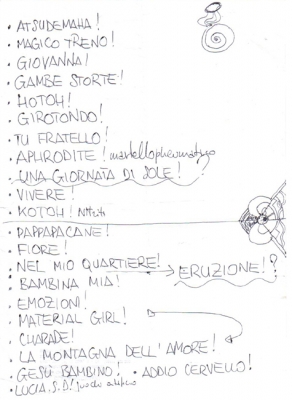 • ATSUDEMAHA!
• MAGICO TRENO!
• GIOVANNA!
• GAMBE STORTE!
• HOTOH!
• GIROTONDO!
• TU FRATELLO!
• APHRODITE! martellopneumatiyo
• UNA GIORNATA DI SOLE!
• VIVERE!
• KOTOH!
• PAPPAPACANE!
• FIORE!
• NEL MIO QUARTIERE! → ERUZIONE!?
• BAMBINA MIA!
• EMOZIONI!
• MATERIAL GIRL!
• CHARADE!
• LA MONTAGNA DELL'AMORE!
• GESÙ BAMBINO! • ADDIO CERVELLO!
• LUCIA. S.D!